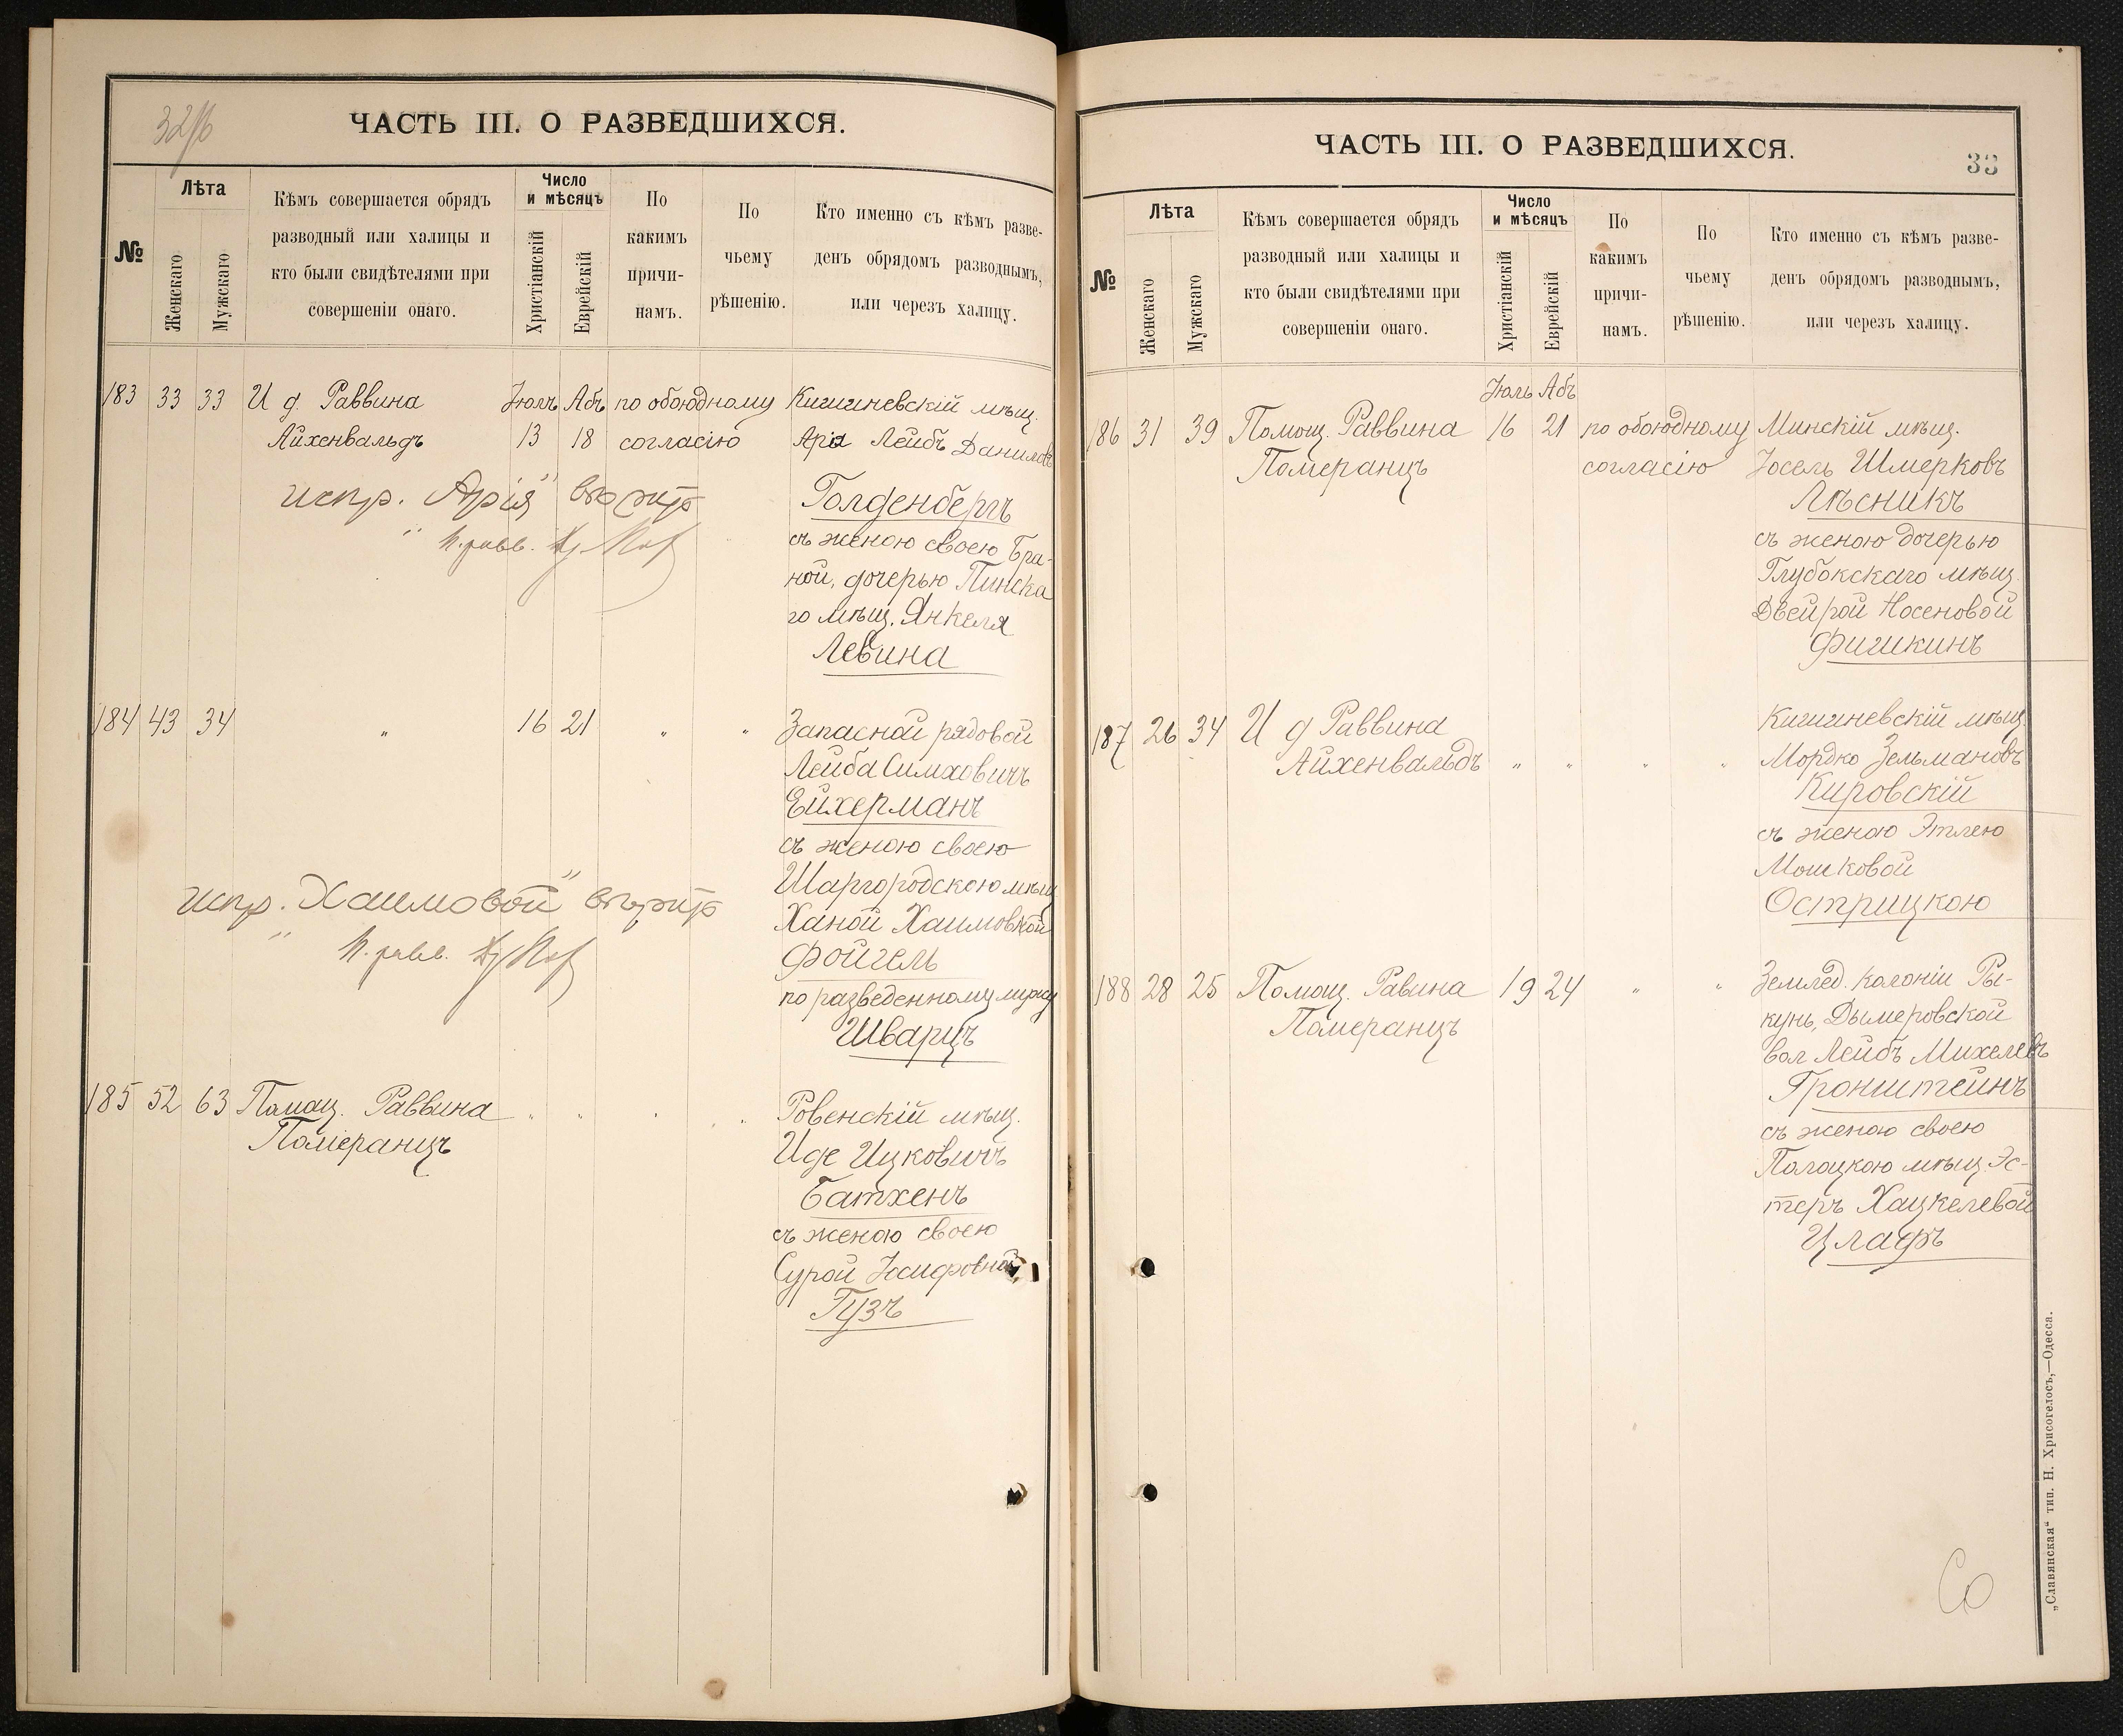 32/б
ЧАСТЬ III. О РАЗВЕДШИХСЯ.
№
Лѣта
Женскаго
Мужскаго
Кѣмъ совершается обрядъ
разводный или халицы и
кто были свидѣтелями при
совершеніи онаго.
Число
и мѣсяцъ
Христіанскій
Еврейскій
По
какимъ
причи-
намъ.
По
чьему
рѣшенію.
Кто именно съ кѣмъ разве-
денъ обрядомъ разводнымъ,
или черезъ халицу.
183 33 33 И д. Раввина Іюль Абъ по обоюдному Кишиневскій мѣщ.
Айхенвальдъ 13 18 согласію Аріа Лейбъ Даниловъ
испр. „Арія" вѣрить Голденбергъ
н. равв.
съ женою своею Бра-
ной, дочерью Пинска
го мѣщ. Янкеля
Левина
184 43 34 „ 16 21 „ „ Запасной рядовой
Лейба Симховичъ
Ейхерманъ
съ женою своею
Шаргородскою мѣщ
испр. „Хаимовой" вѣрить Ханой Хаимовной
н. равв.
Фойгель
по разведенному мужу
Шварцъ
185 52 63 Помощ. Раввина „ „ „ „ Ровенскій мѣщ.
Померанцъ Иде Ицковичъ
Батхенъ
съ женою своею
Сурой Іосифовной
Гузъ
ЧАСТЬ III. О РАЗВЕДШИХСЯ.
33
№
Лѣта
Женскаго
Мужскаго
Кѣмъ совершается обрядъ
разводный или халицы и
кто были свидѣтелями при
совершеніи онаго.
Число
и мѣсяцъ
Христіанскій
Еврейскій
По
какимъ
причи-
намъ.
По
чьему
рѣшенію.
Кто именно съ кѣмъ разве-
денъ обрядомъ разводнымъ,
или черезъ халицу.
Іюль Абъ
186 31 39 Помощ. Раввина 16 21 по обоюдному Минскій мѣщ.
Померанцъ согласію Іосель Шмерковъ
Лѣсникъ
съ женою дочерью
Глубокскаго мѣщ.
Двейрой Носеновой
Фишкинъ
187 26 34 И д Раввина Кишиневскій мѣщ
Айхенвальдъ „ „ „ „ Мордко Зельмановъ
Кировскій
съ женою Этлею
Мошковой
Острицкою
188 28 25 Помощ. Равина 19 24 „ „ Землед. колоніи Ры-
Померанцъ кунь, Дымеровской
вол Лейбъ Михелевъ
Гронштейнъ
съ женою своею
Полоцкою мѣщ. Эс-
теръ Хацкелевой
Цлафъ
„Славянская" тип. Н. Хрисогелосъ,—Одесса.